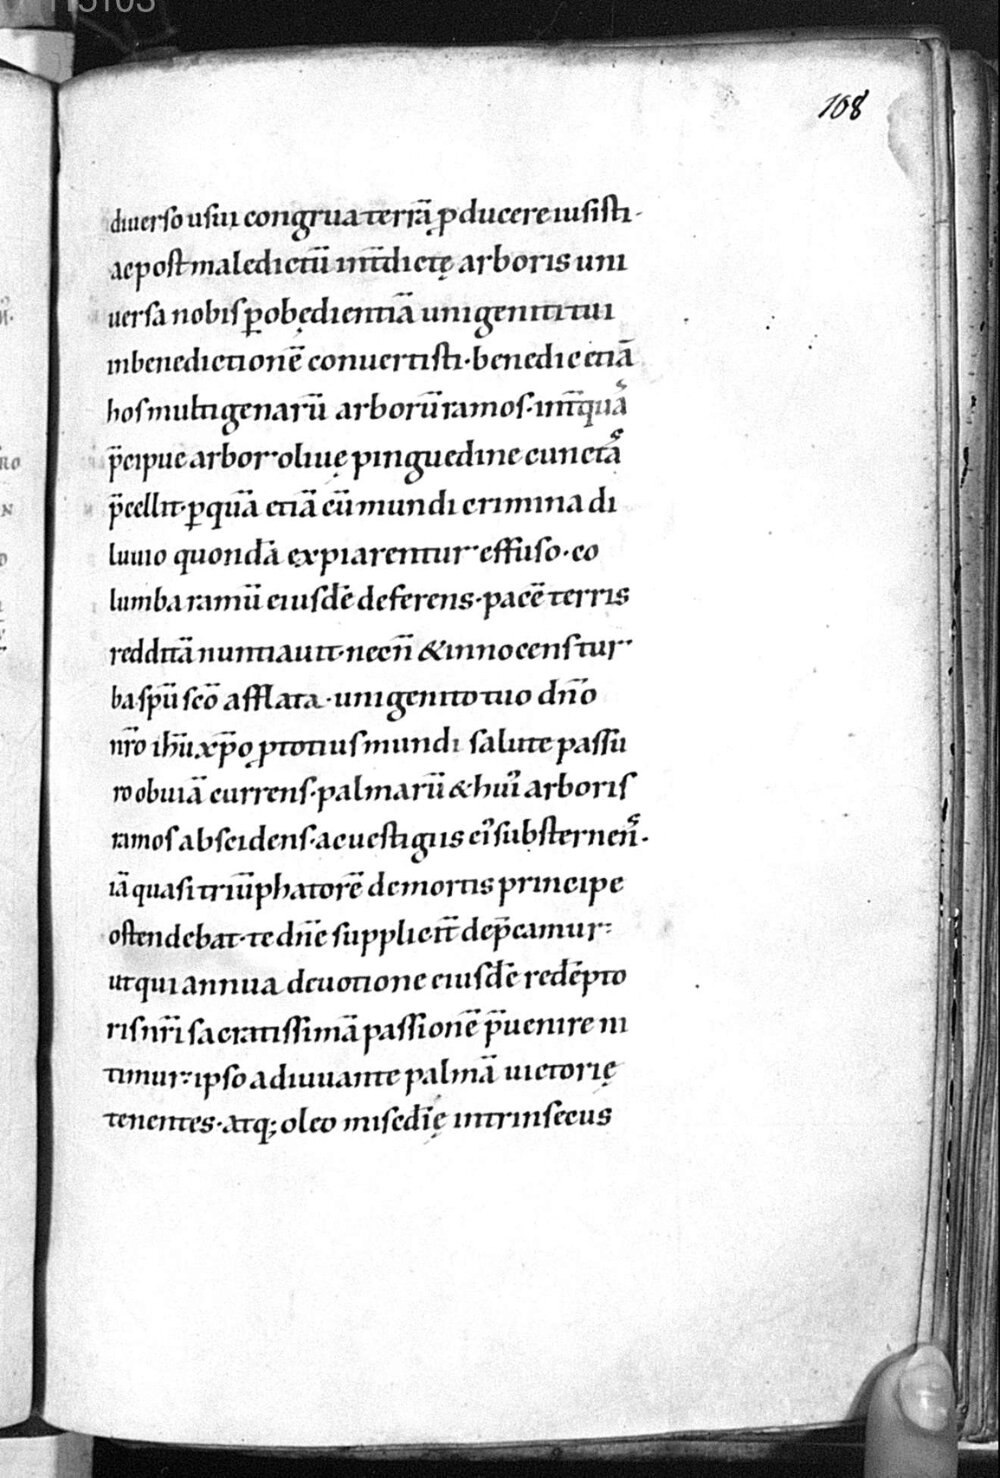 108
diuerso usui congrua terrā ꝓducere iusisti·
ac post maledictū int̄dictę arboris uni
uersa nobis ꝑ obędientiā unigeniti tui
in benedictionē conuertisti· benedic etiā
hos multigenarū arborū ramos· int̄ quā
p̄cipue arbor oliuę pinguedine cunctā
p̄cellit· ꝑ quā etiā cū mundi crimina di
luuio quondā expiarentur effuso· co
lumba ramū eiusdē deferens· pacē terris
redditā nuntiauit· necn̄ & innocens tur
ba sp̄u sc̄o afflata· unigenito tuo dn̄o
nr̄o ih̄u xp̄o ꝓ totius mundi salute passu
ro obuiā currens· palmarū & hui᾿ arboris
ramos abscidens· ac uestigiis ei᾿ substernen̄·
iā quasi triūphatorē de mortis principe
ostendebat· te dn̄e supplicit̄ dep̄camur·
ut qui annua deuotione eiusdē redēpto
ris nr̄i sacratissimā passionē p̄uenire ni
timur· ipso adiuuante palmā uictorię
tenentes· atq; oleo misc̄dię intrinsecus